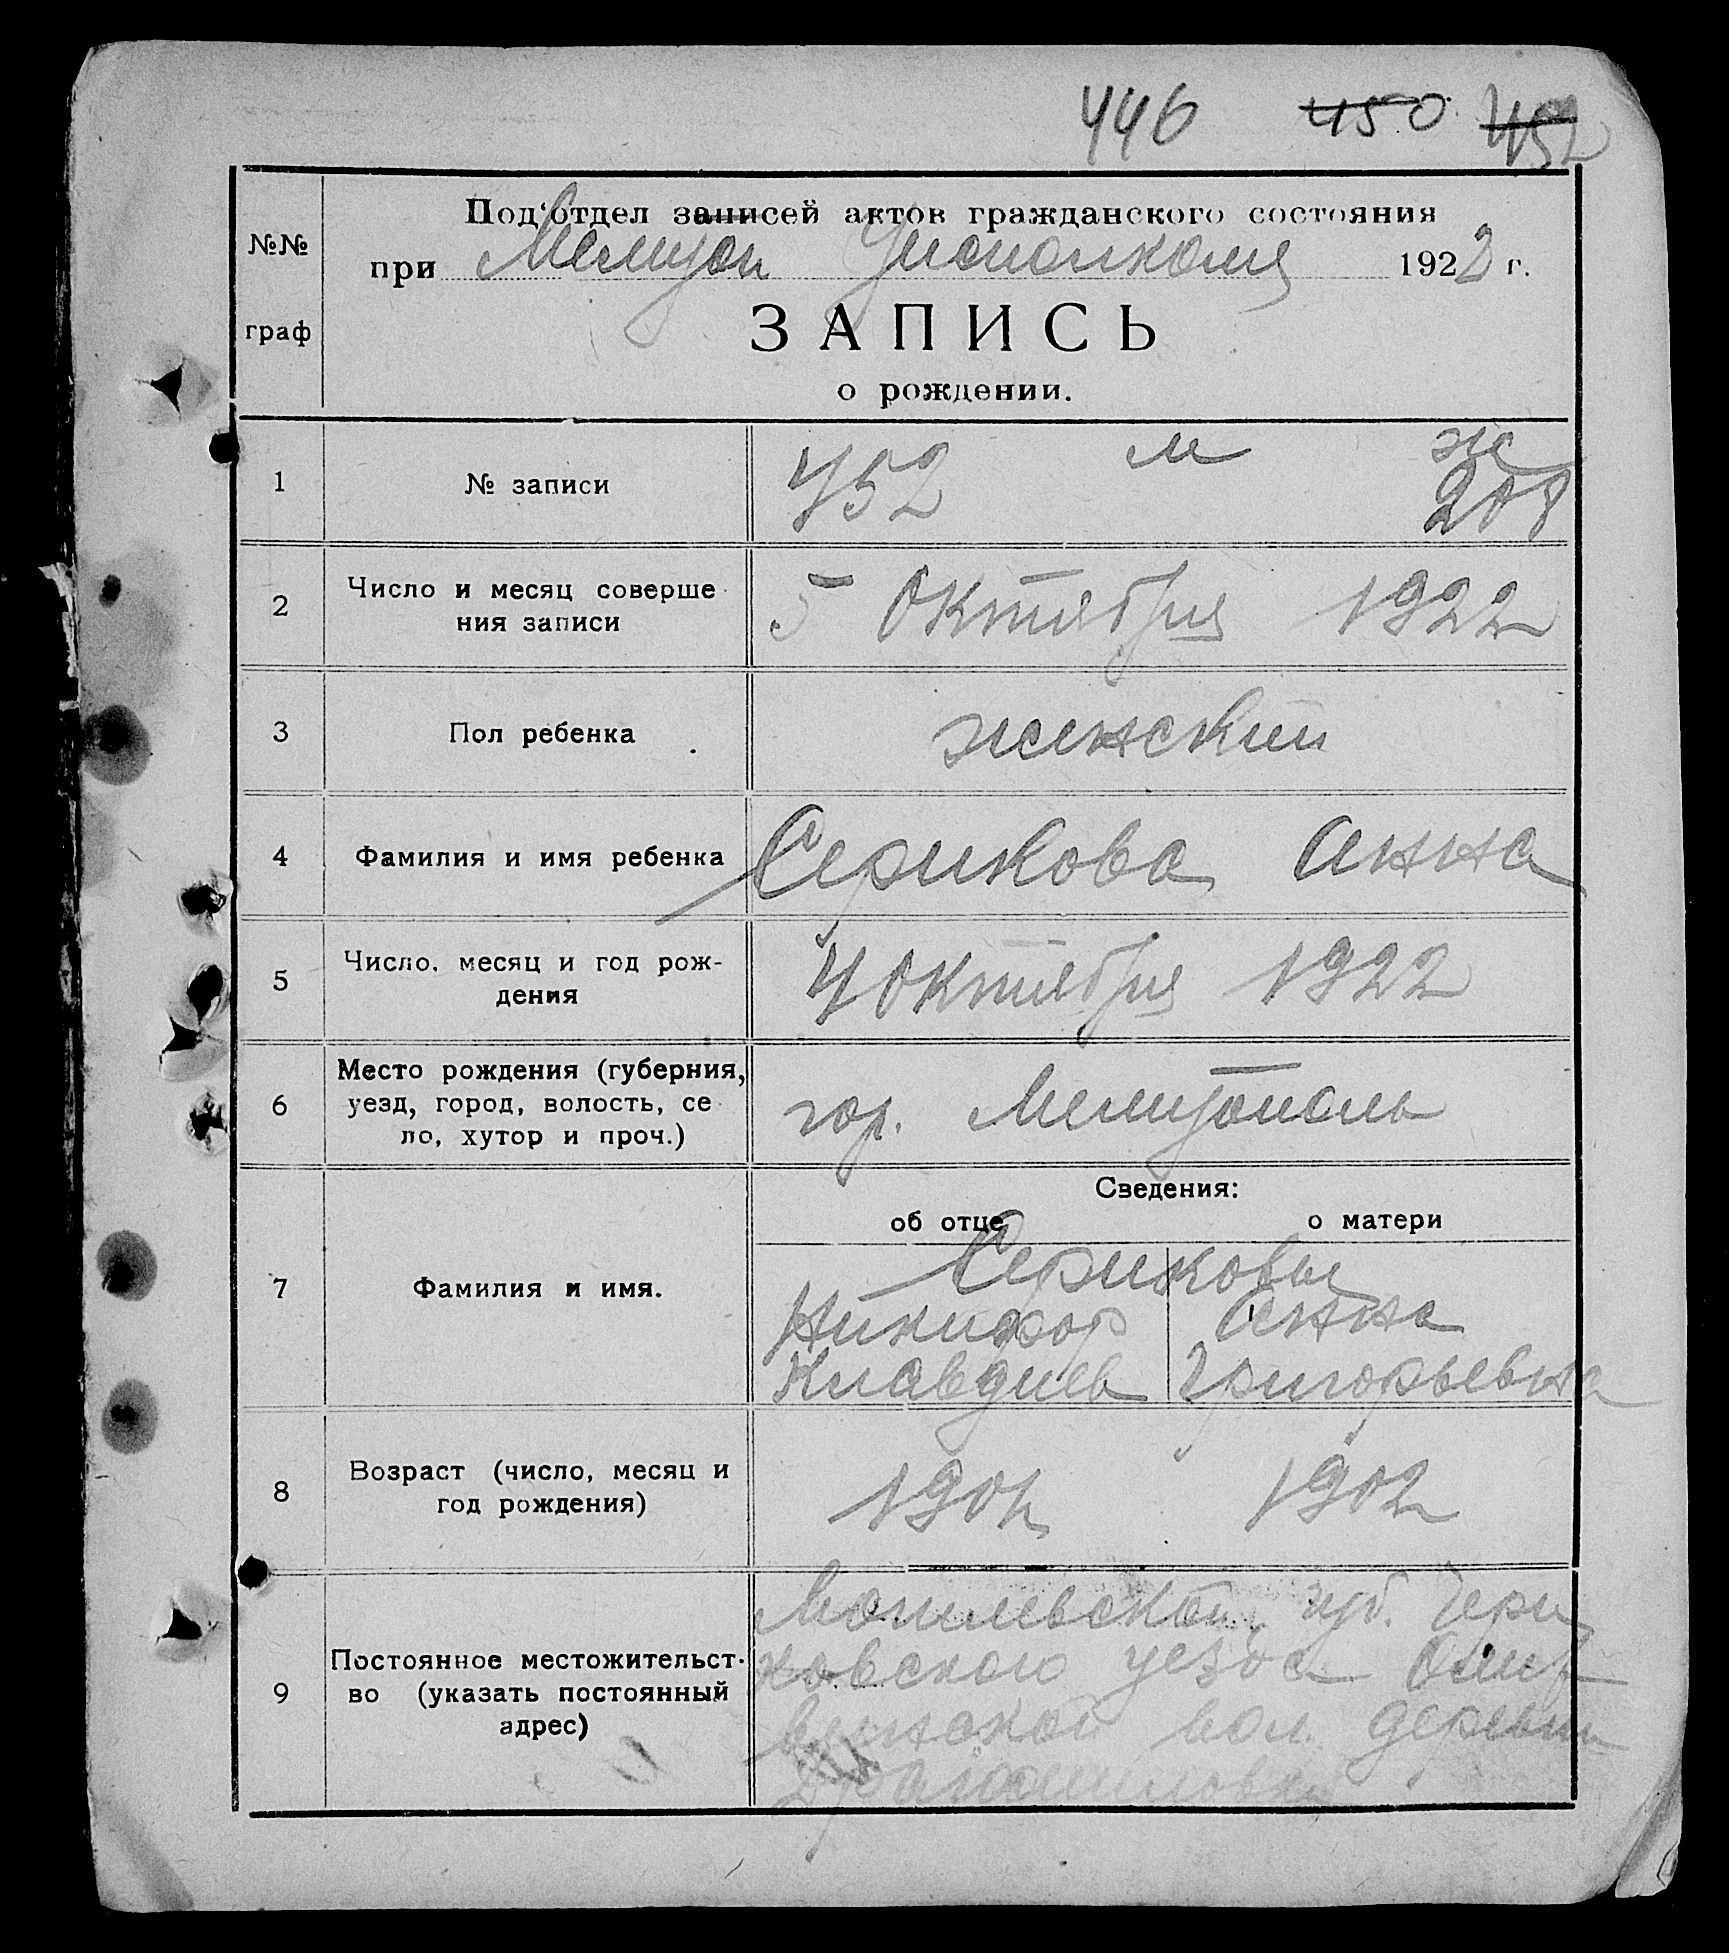 446 450 452
№№ граф
Под'отдел записей актов гражданского состояния
при Мелитоп Уисполкома 1922 г.
ЗАПИСЬ
о рождении.
1 № записи 452 м ж
208
2 Число и месяц соверше
ния записи 5 Октября 1922
3 Пол ребенка женский
4 Фамилия и имя ребенка Серикова Анна
5 Число, месяц и год рож-
дения 4 Октября 1922
6 Место рождения (губерния,
уезд, город, волость, се
ло, хутор и проч.) гор. Мелитополь
Сведения:
об отце о матери
7 Фамилия и имя. Сериковы
Никифор Анна
Клавдиев Григорьевна
8 Возраст (число, месяц и
год рождения) 1902
9 Постоянное местожительст-
во (указать постоянный
адрес)
Могилевской губ. Чери
ковского уезда
вол. деревни